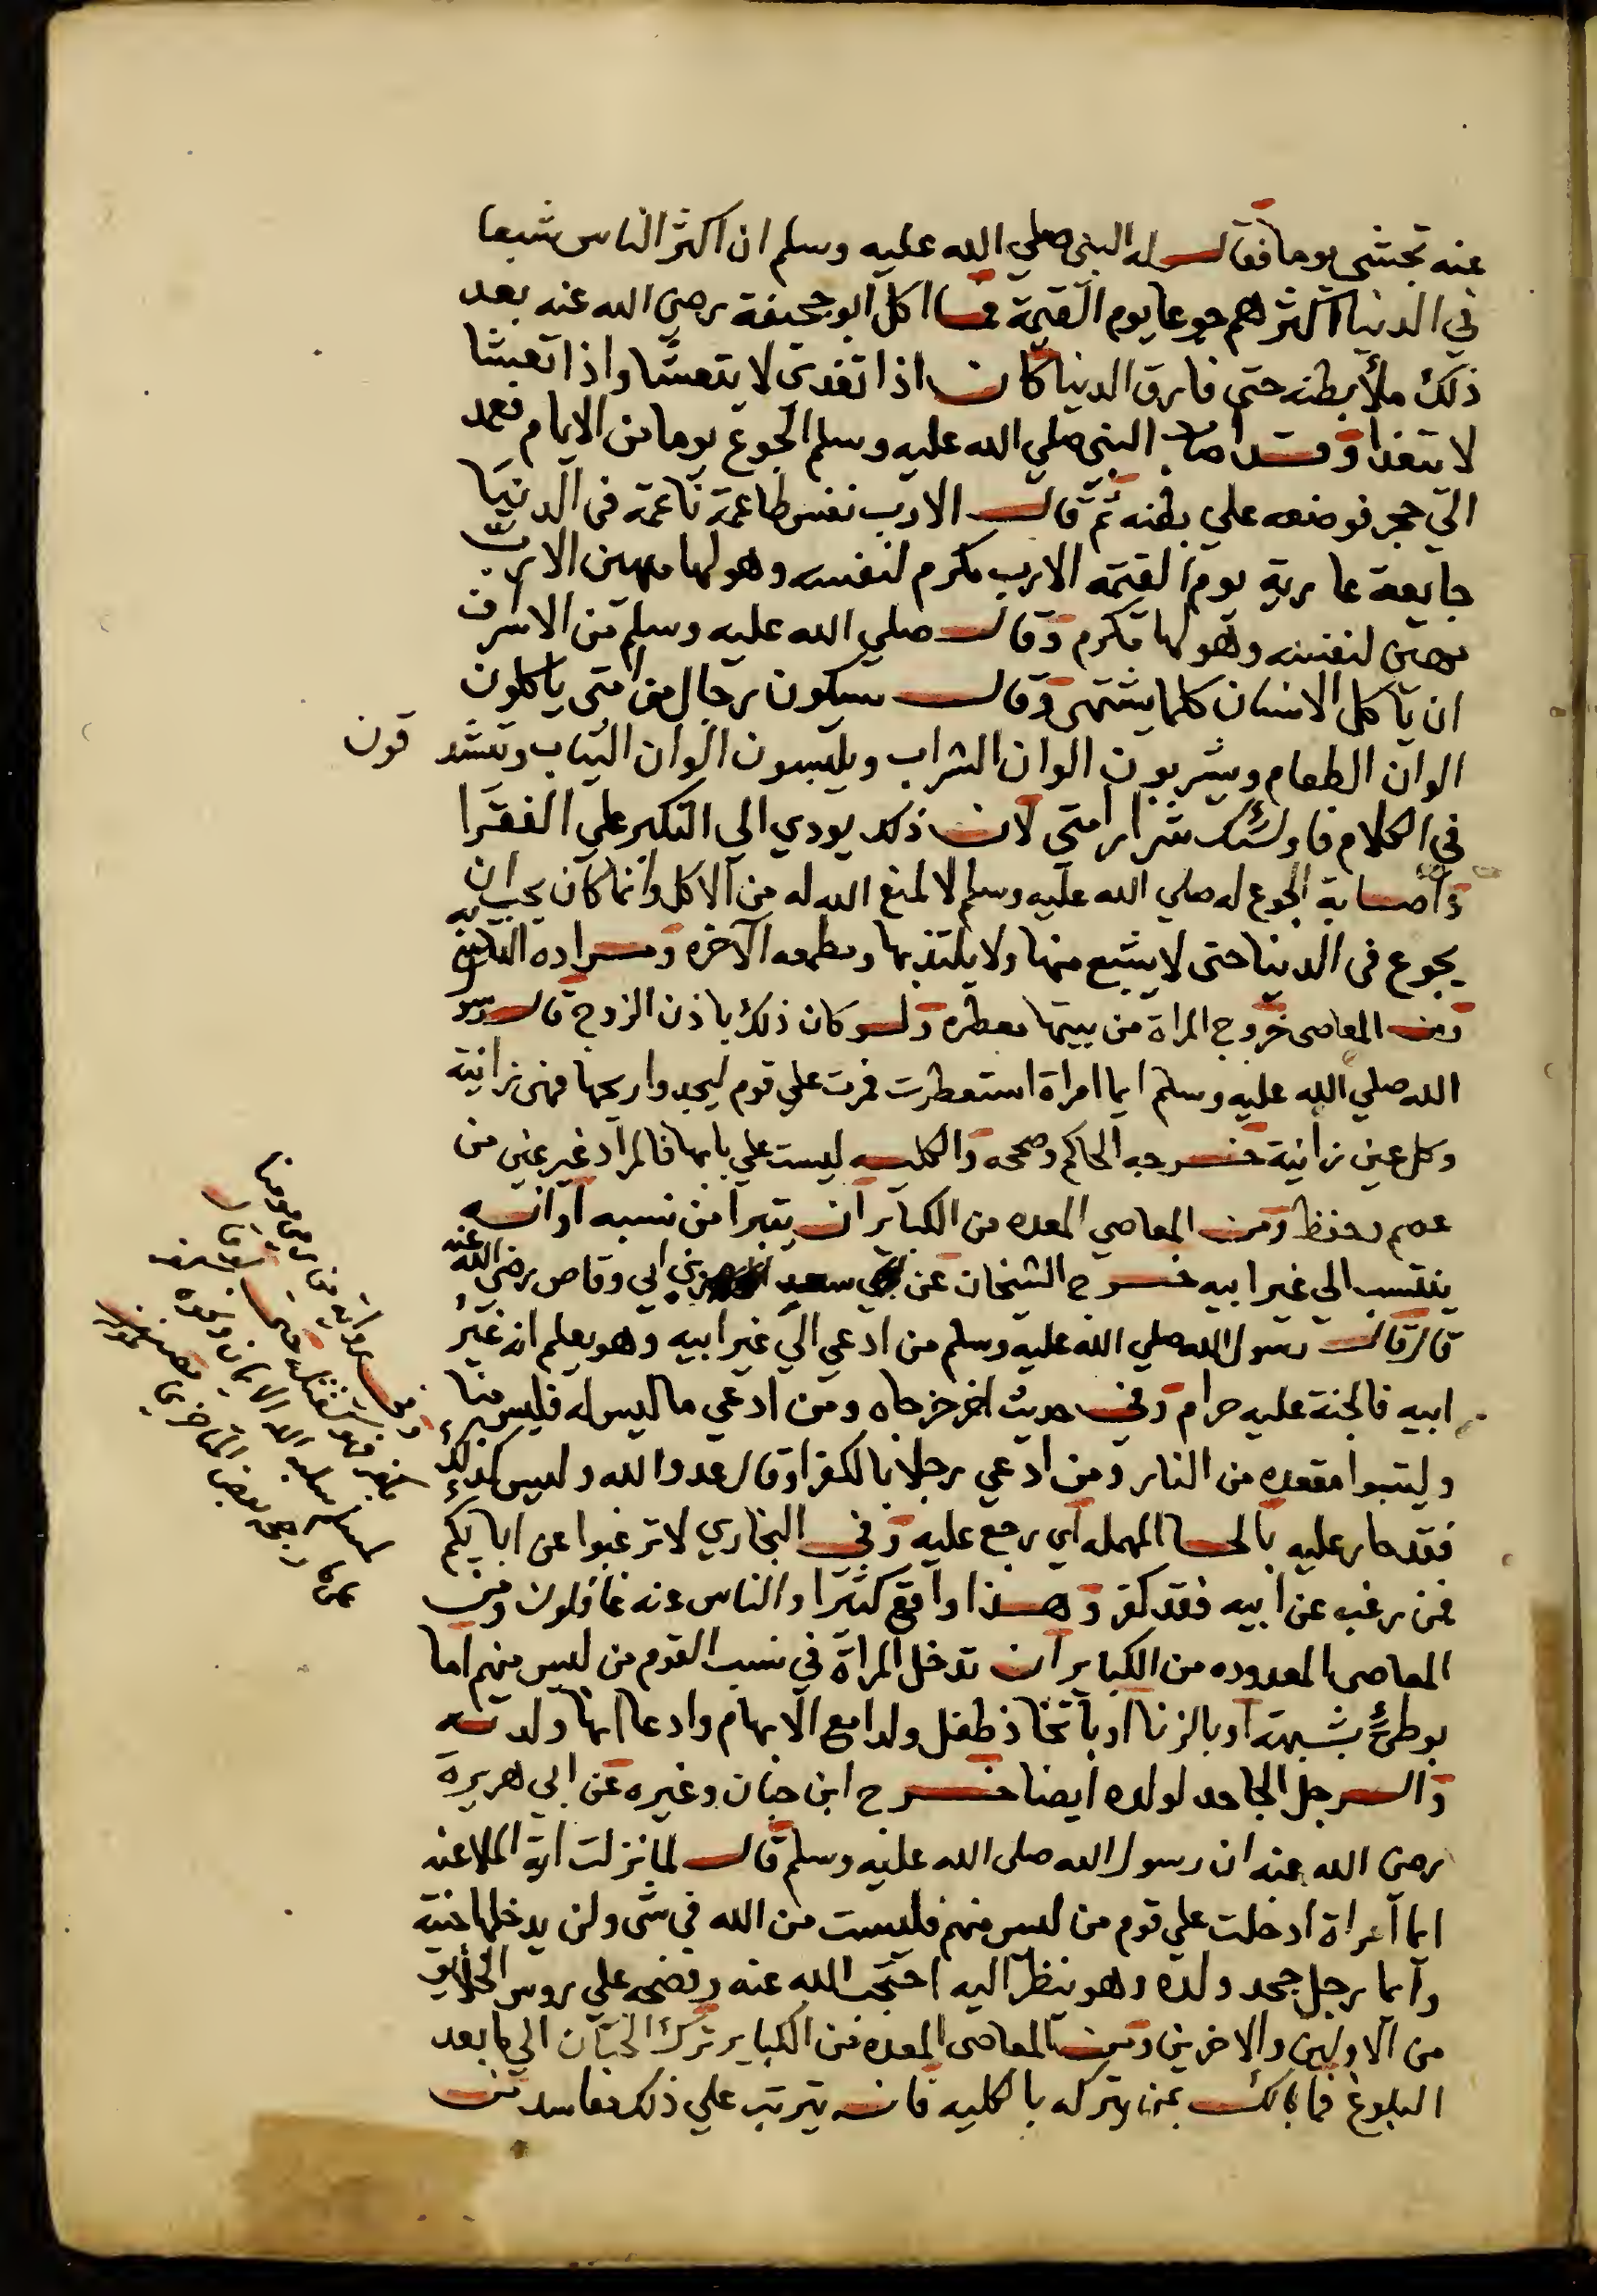 عنه تجشى يوما فقال له النبي صلي الله عليه وسلم ان اكثر الناس شبعا
في الدنيا اكثرهم جوعا يوم القيمة فما اكل ابو جحيفة رضي الله عنه بعد
ذلك ملأ بطنه حتى فارق الدنيا كان اذا تغدى لا يتعشا واذا تعشا
لا يتغدا وقد اصاب النبي صلي الله عليه وسلم الجوع يوما من الايام فعمد
الي حجر فوضعه علي بطنه ثم قال الارب نفس طاعمة ناعمة في الدنيا
جايعة عارية يوم القيمة الارب مكرم لنفسه وهو لها مهين الارب
مهين لنفسه وهو لها مكرم وقال صلي الله عليه وسلم من الاسراف
ان ياكل الانسان كلما يشتهى وقال سيكون رجال من امتى ياكلون
الوان الطعام ويشربون الوان الشراب ويلبسون الوان الثياب ويتشد قون
في الكلام فاولئك شرار امتى لان ذلك يودي الى التكبر علي الفقرا
واصابة الجوع له صلي الله عليه وسلم لا لمنع الله له من الاكل وانما كان يحب ان
يجوع في الدنيا حتى لا يشبع منها ولا يلتذ بها ومطمعه الآخره ومراده
ومن المعاصى خروج المراة من بيتها معطره ولو كان ذلك باذن الزوج قال رسو
الله صلي الله عليه وسلم ايما امراة استعطرت فمرت علي قوم ليجدوا ريحها فهى زانية
وكل عين زانية خرجه الحاكم وصححه والكليه ليست علي بابها فالمراد غير عين من
عصم وحفظ ومن المعاصي المعده من الكباير ان يتبرا من نسبه او انه
ينتسب الي غير ابيه خرج الشيخان عن سعد بن ابي وقاص رضي الله عنه
قال قال رسول الله صلي الله عليه وسلم من ادعي الي غير ابيه وهو يعلم انه غير
ابيه فالجنة عليه حرام وفي حديث اخر خرجاه ومن ادعي ما ليس له فليس منا
وليتبوا مقعده من النار ومن ادعي رجلا بالكفر او قال عدو الله وليس كذلك
فقد حار عليه بالحا المهمله اي رجع عليه وفي البخاري لا ترغبوا عن ابايكم
فمن رغب عن ابيه فقد كفر وهذا واقع كثيرا والناس عنه غافلون ومن
المعاصى المعدوده من الكباير ان تدخل المراة في نسب القوم من ليس منهم اما
بوطئ بشبهة او بالزنا او باتخاذ طفل ولدا مع الابهام وادعا انها ولدته
والرجل الجاحد لولده ايضا خرج ابن حبان وغيره عن ابي هريرة
رضى الله عنه ان رسول الله صلى الله عليه وسلم قال لما نزلت اية الملاعنه
ايما امراة ادخلت علي قوم من ليس منهم فليست من الله في شى ولن يدخلها جنته
وايما رجل جحد ولده وهو ينظر اليه احتجب الله عنه وفضحه علي روس الخلايق
من الاولين والاخرين ومن المعاصى المعده من الكباير ترك الختان الي ما بعد
البلوغ فما بالك بمن يتركه بالكليه فانه يترتب علي ذلك مفاسد من